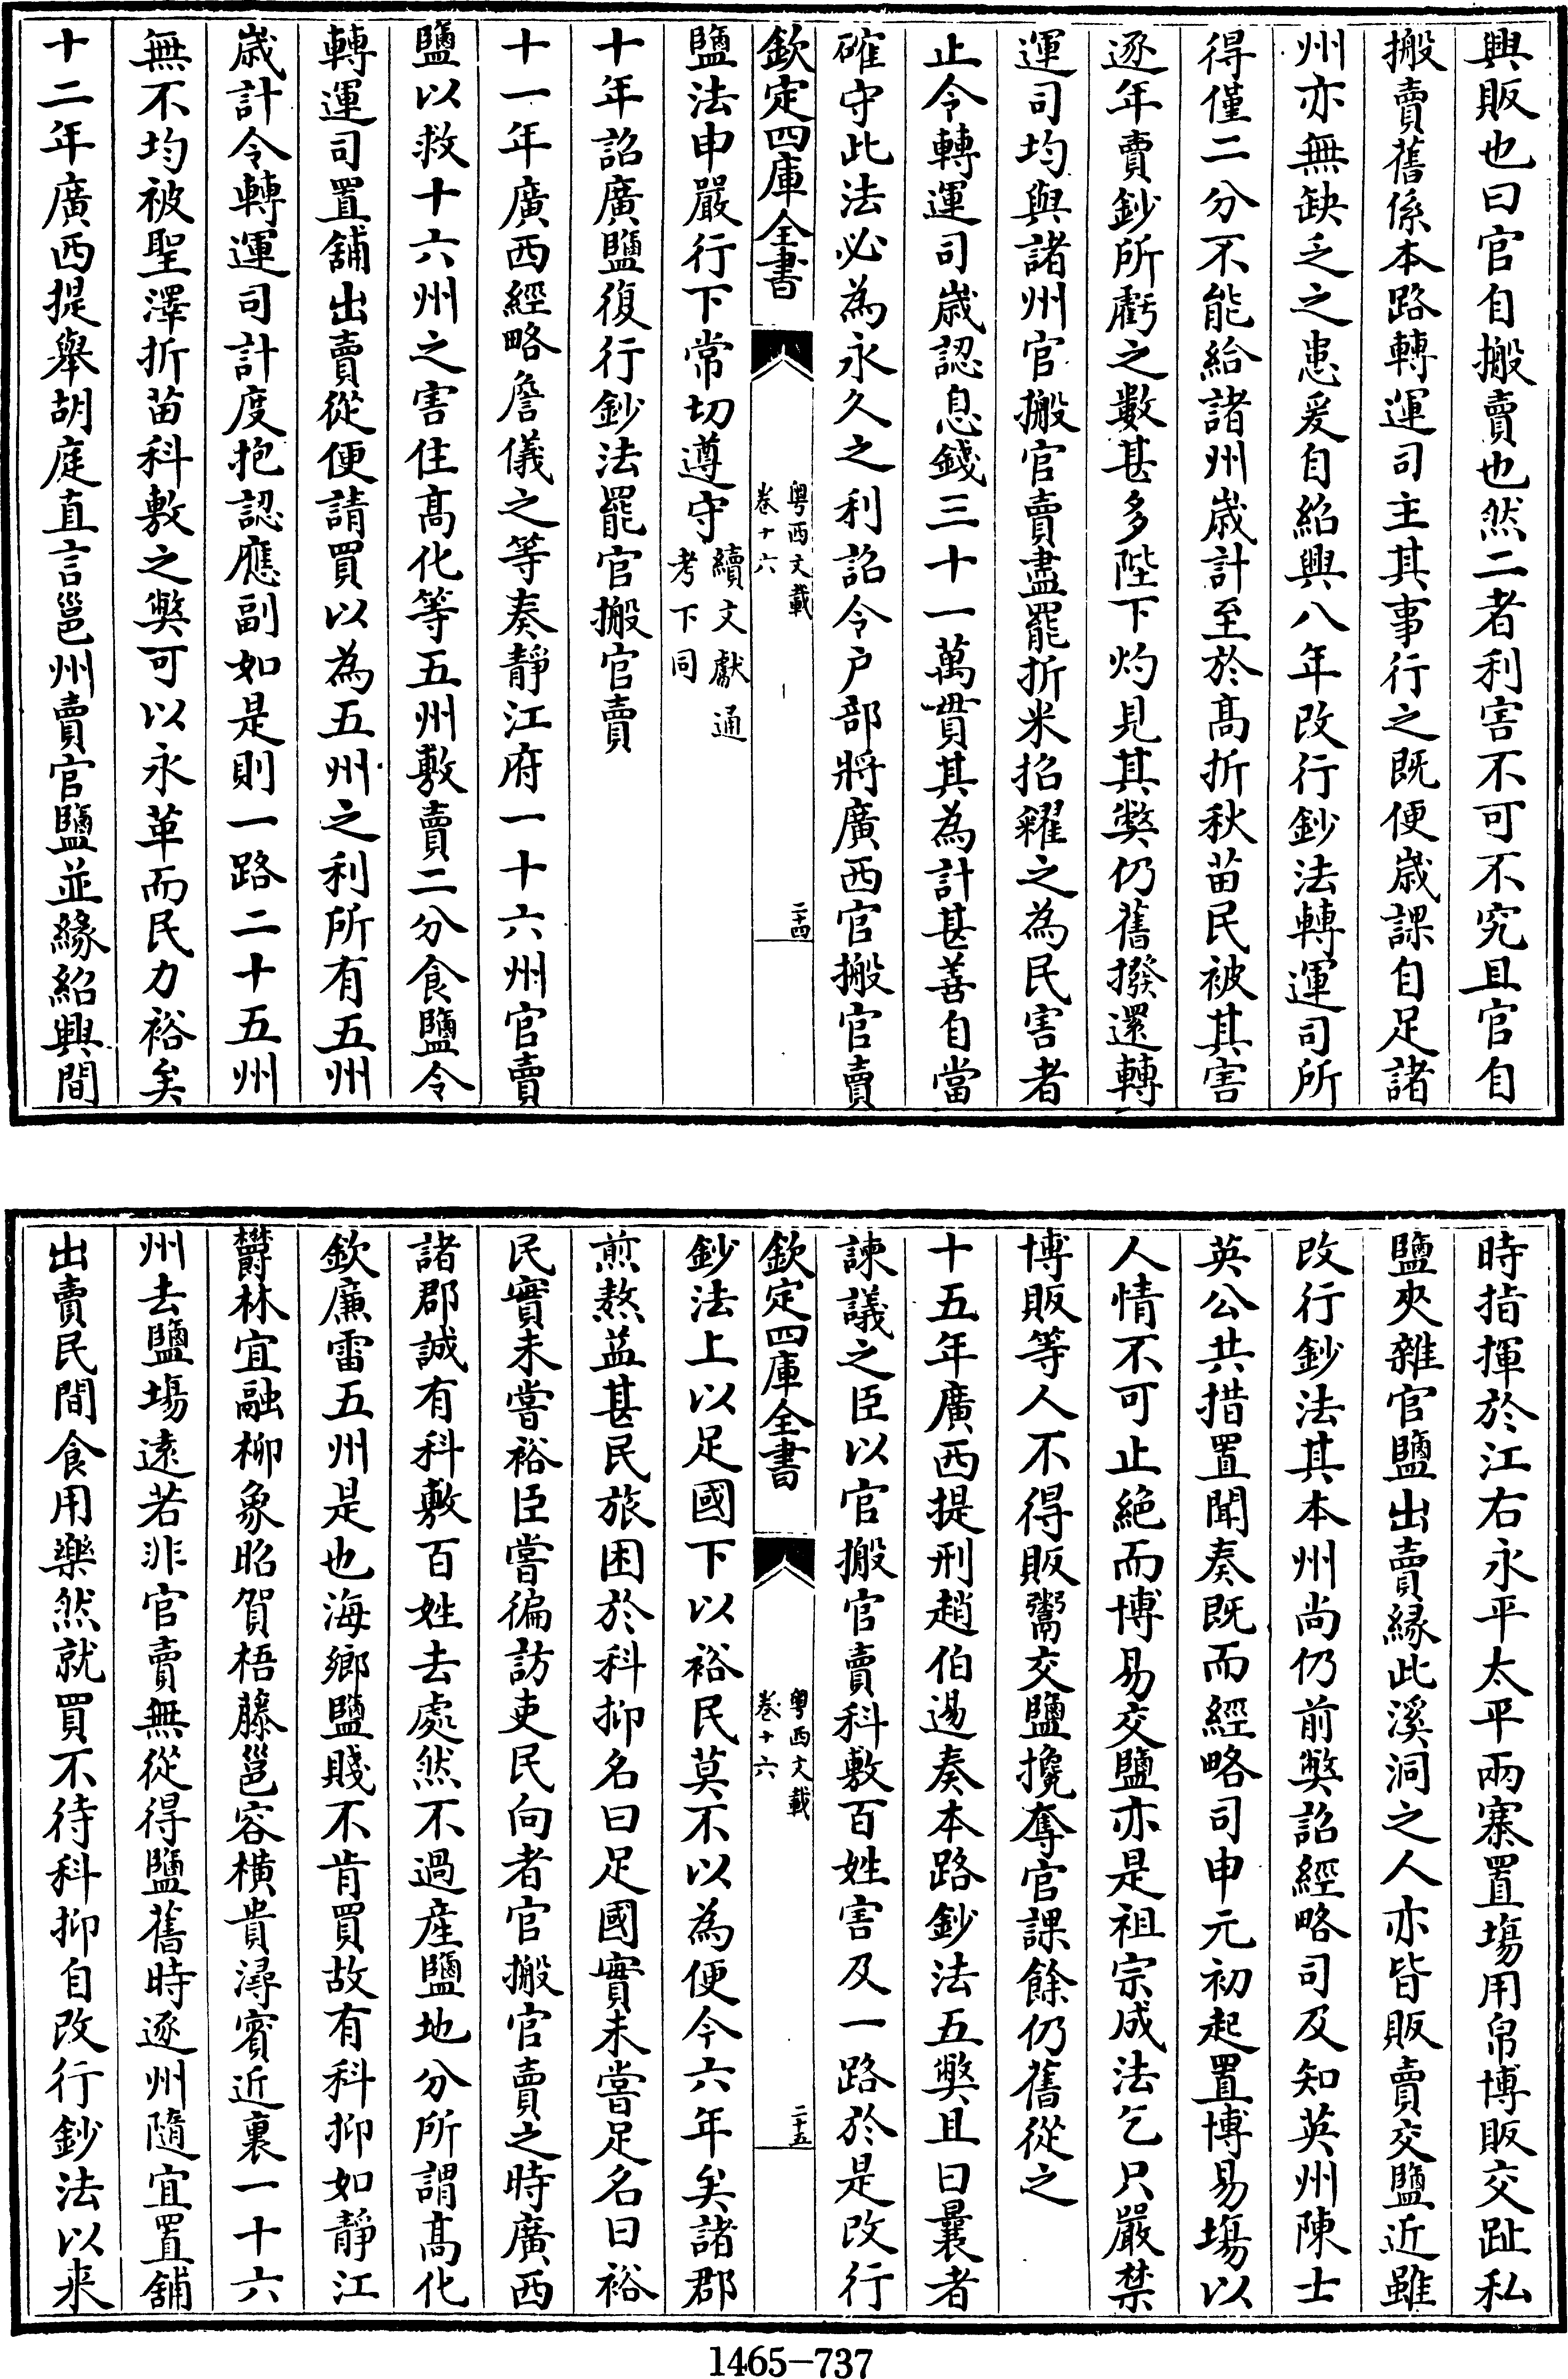 興販也曰官自搬賣也然二者利害不可不究且官自
搬賣舊係本路轉運司主其事行之既便歳課自足諸
州亦無缺乏之患爰自紹興八年改行鈔法轉運司所
得僅二分不能給諸州歳計至於髙折秋苗民被其害
逐年賣鈔所虧之數甚多陛下灼見其弊仍舊撥還轉
運司均與諸州官搬官賣盡罷折米招糴之為民害者
止令轉運司歳認息錢三十一萬貫其為計甚善自當
確守此法必為永久之利詔令户部將廣西官搬官賣
欽定四庫全書
粤西文載
卷十六
二十四
鹽法申嚴行下常切遵守續文獻通
考下同
十年詔廣鹽復行鈔法罷官搬官賣
十一年廣西經略詹儀之等奏靜江府一十六州官賣
鹽以救十六州之害住髙化等五州敷賣二分食鹽令
轉運司置舖出賣從便請買以為五州之利所有五州
歳計令轉運司計度抱認應副如是則一路二十五州
無不均被聖澤折苗科敷之弊可以永革而民力裕矣
十二年廣西提舉胡庭直言邕州賣官鹽並緣紹興間
時指揮於江右永平太平兩寨置塲用帛博販交趾私
鹽夾雜官鹽出賣緣此溪洞之人亦皆販賣交鹽近雖
改行鈔法其本州尚仍前弊詔經略司及知英州陳士
英公共措置聞奏既而經略司申元初起置博易塲以
人情不可止絶而博易交鹽亦是祖宗成法乞只嚴禁
博販等人不得販鬻交鹽攙奪官課餘仍舊從之
十五年廣西提刑趙伯逿奏本路鈔法五弊且曰曩者
諫議之臣以官搬官賣科敷百姓害及一路於是改行
欽定四庫全書
粤西文載
卷十六
二十五
鈔法上以足國下以裕民莫不以為便今六年矣諸郡
煎熬盐甚民旅困於科抑名曰足國實未嘗足名曰裕
民實未嘗裕臣嘗徧訪吏民向者官搬官賣之時廣西
諸郡誠有科敷百姓去處然不過産鹽地分所謂髙化
欽廉雷五州是也海鄉鹽賤不肯買故有科抑如靜江
欝林宜融柳象昭賀梧藤邕容横貴潯賓近裏一十六
州去鹽塲逺若非官賣無從得鹽舊時逐州隨宜置舖
出賣民間食用樂然就買不待科抑自改行鈔法以来
1465-737